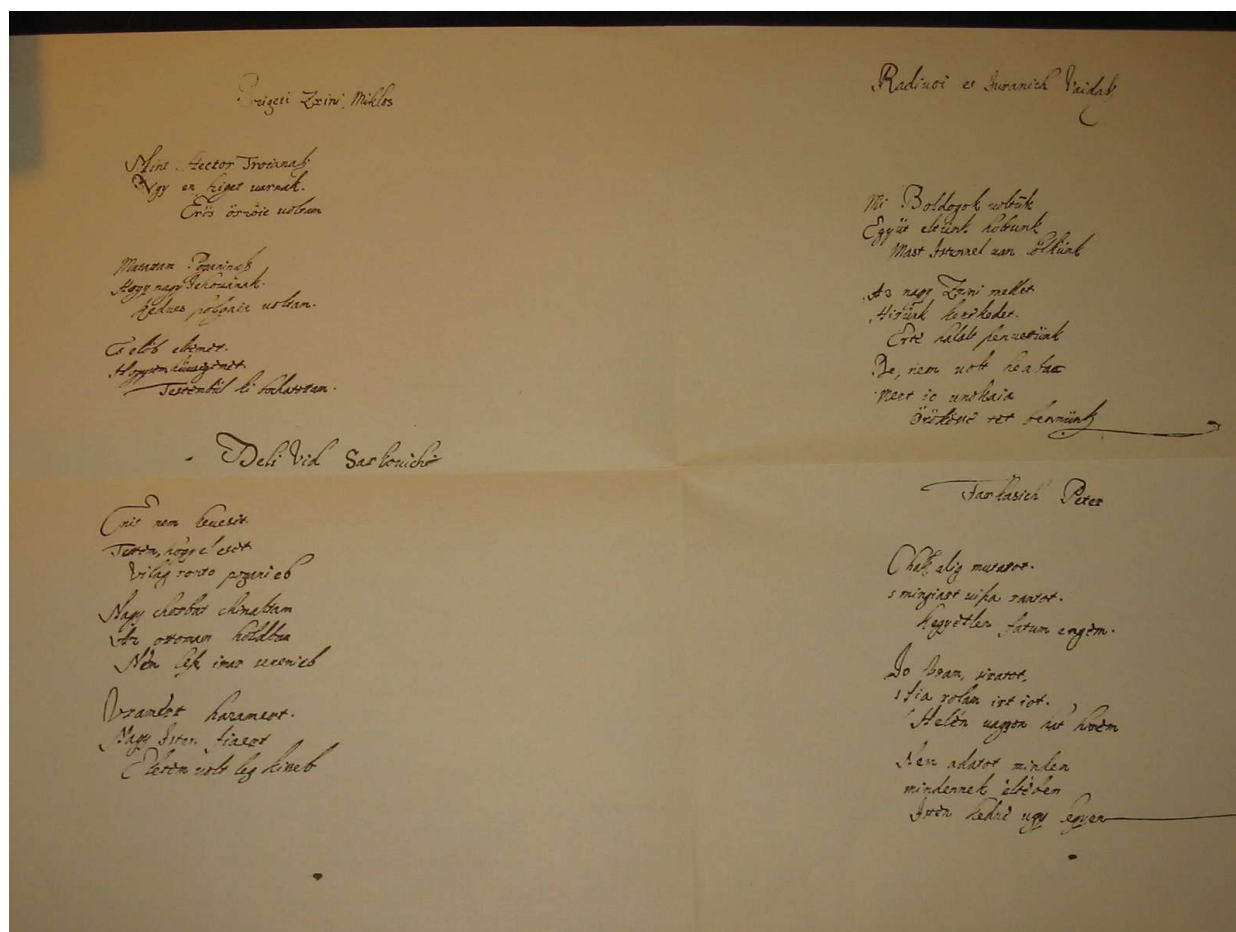 Szigeti Zrini Miklos
Mint Hector Troianak
Ugy en Sziget uarnak.
Erös örzöie uoltam
Mutatam Poganinak
Hogy nagy Jehouának.
Kedues szolgaia uoltam.
Es elöb eltemet.
Hogysem hüuségemet.
Testembül ki bochatottam.
Deli Vid Sarkouich
Enis nem keueset.
Tettem, hogy el eset
Világ ronto pogani eb
Nagy chorbat chinaltam
Az ottoman holdban
Nem lesz imar uerenieb
Uramert hazamert.
Nagy Isten fiaert
Eletem uolt leg kiseb
Radiuoi es Juranich Vaidak
Mi Boldogok uoltunk
Együt eltünk holtunk
Mast Istennel uan lölkünk
Az nagy Zrini mellet
Hirünk kereskedet.
Erte halalt szenuettünk
De, nem uolt heaban
Mert ie unokaia
Örökösse tet bennünk
Farkasich Peter
Chak alig mutatot.
s mingiart uisza rantot.
Kegyetlen fatum engem.
Jo Uram, siratot,
s fia rolam irt iot.
Helen uagyon hat hirem
Nem adatot minden
mindennek eltében
Isten kedue ugy legyen